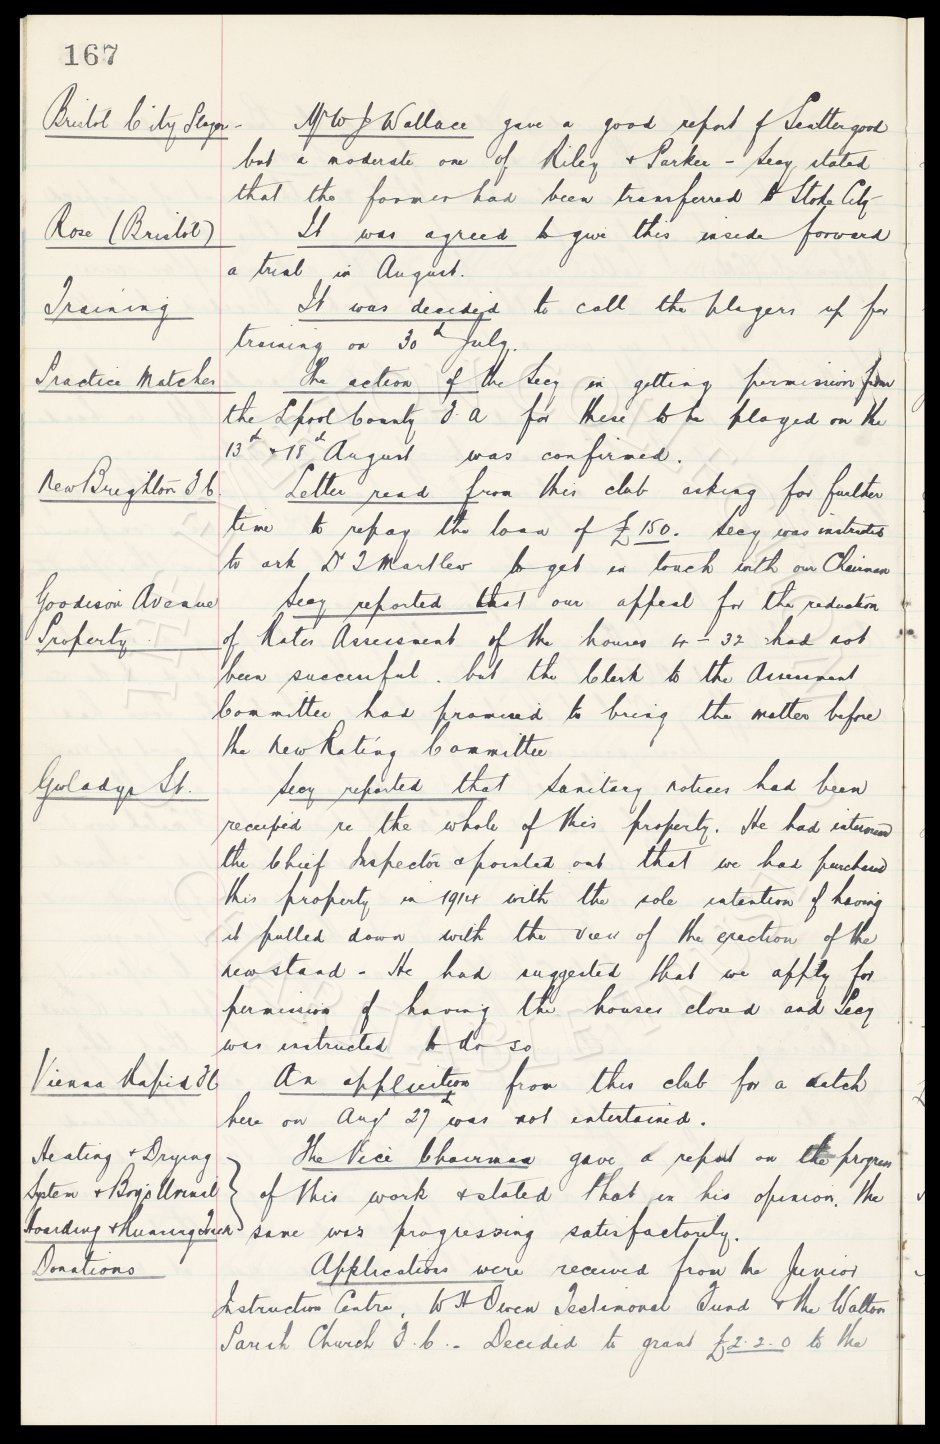 167
Bristol City Player - Mr W J Wallace gave a good report of Scattergood
but a moderate one of Riley & Parker - Secy stated
that the former had been transferred to Stoke City
Rose (Bristol) It was agreed to give this inside forward
a trial in August.
Training It was decided to call the players up for
training on 30th July.
Practice Matches The action of the Secy in getting permission from
the Lpool County F.A for these to be played on the
13th & 18th August was confirmed.
New Brighton F.C. Letter read from this club asking for further
time to repay the loan of £150. Secy was instructed
to ask Dr J Martlew to get in touch with our Chairman
Goodison Avenue Secy reported that our appeal for the reduction
Property of Rates Assessment of the houses 4 - 32 had not
been successful. but the Clerk to the Assessment
Committee had promised to bring the matter before
the new Rating Committee
Gwladys St. Secy reported that Sanitary notices had been
received re the whole of this property. He had interviewed
the Chief Inspector & pointed out that we had purchased
this property in 1914 with the sole intention of having
it pulled down with the view of the erection of the
new stand - He had suggested that we apply for
permission of having the houses closed and Secy
was instructed to do so
Vienna Rapid F.C An application from this club for a match
here on Augt 27th was not entertained.
Heating & Drying The Vice Chairman gave a report on the progress
System & Boys Urinal of this work & stated that in his opinion, the
Hoarding & Running Track same was progressing satisfactorily.
Donations Applications were received from the Junior
Instruction Centre, W H Owen Testimonal Fund & the Walton
Parish Church F.C. - Decided to grant £2.2.0 to the